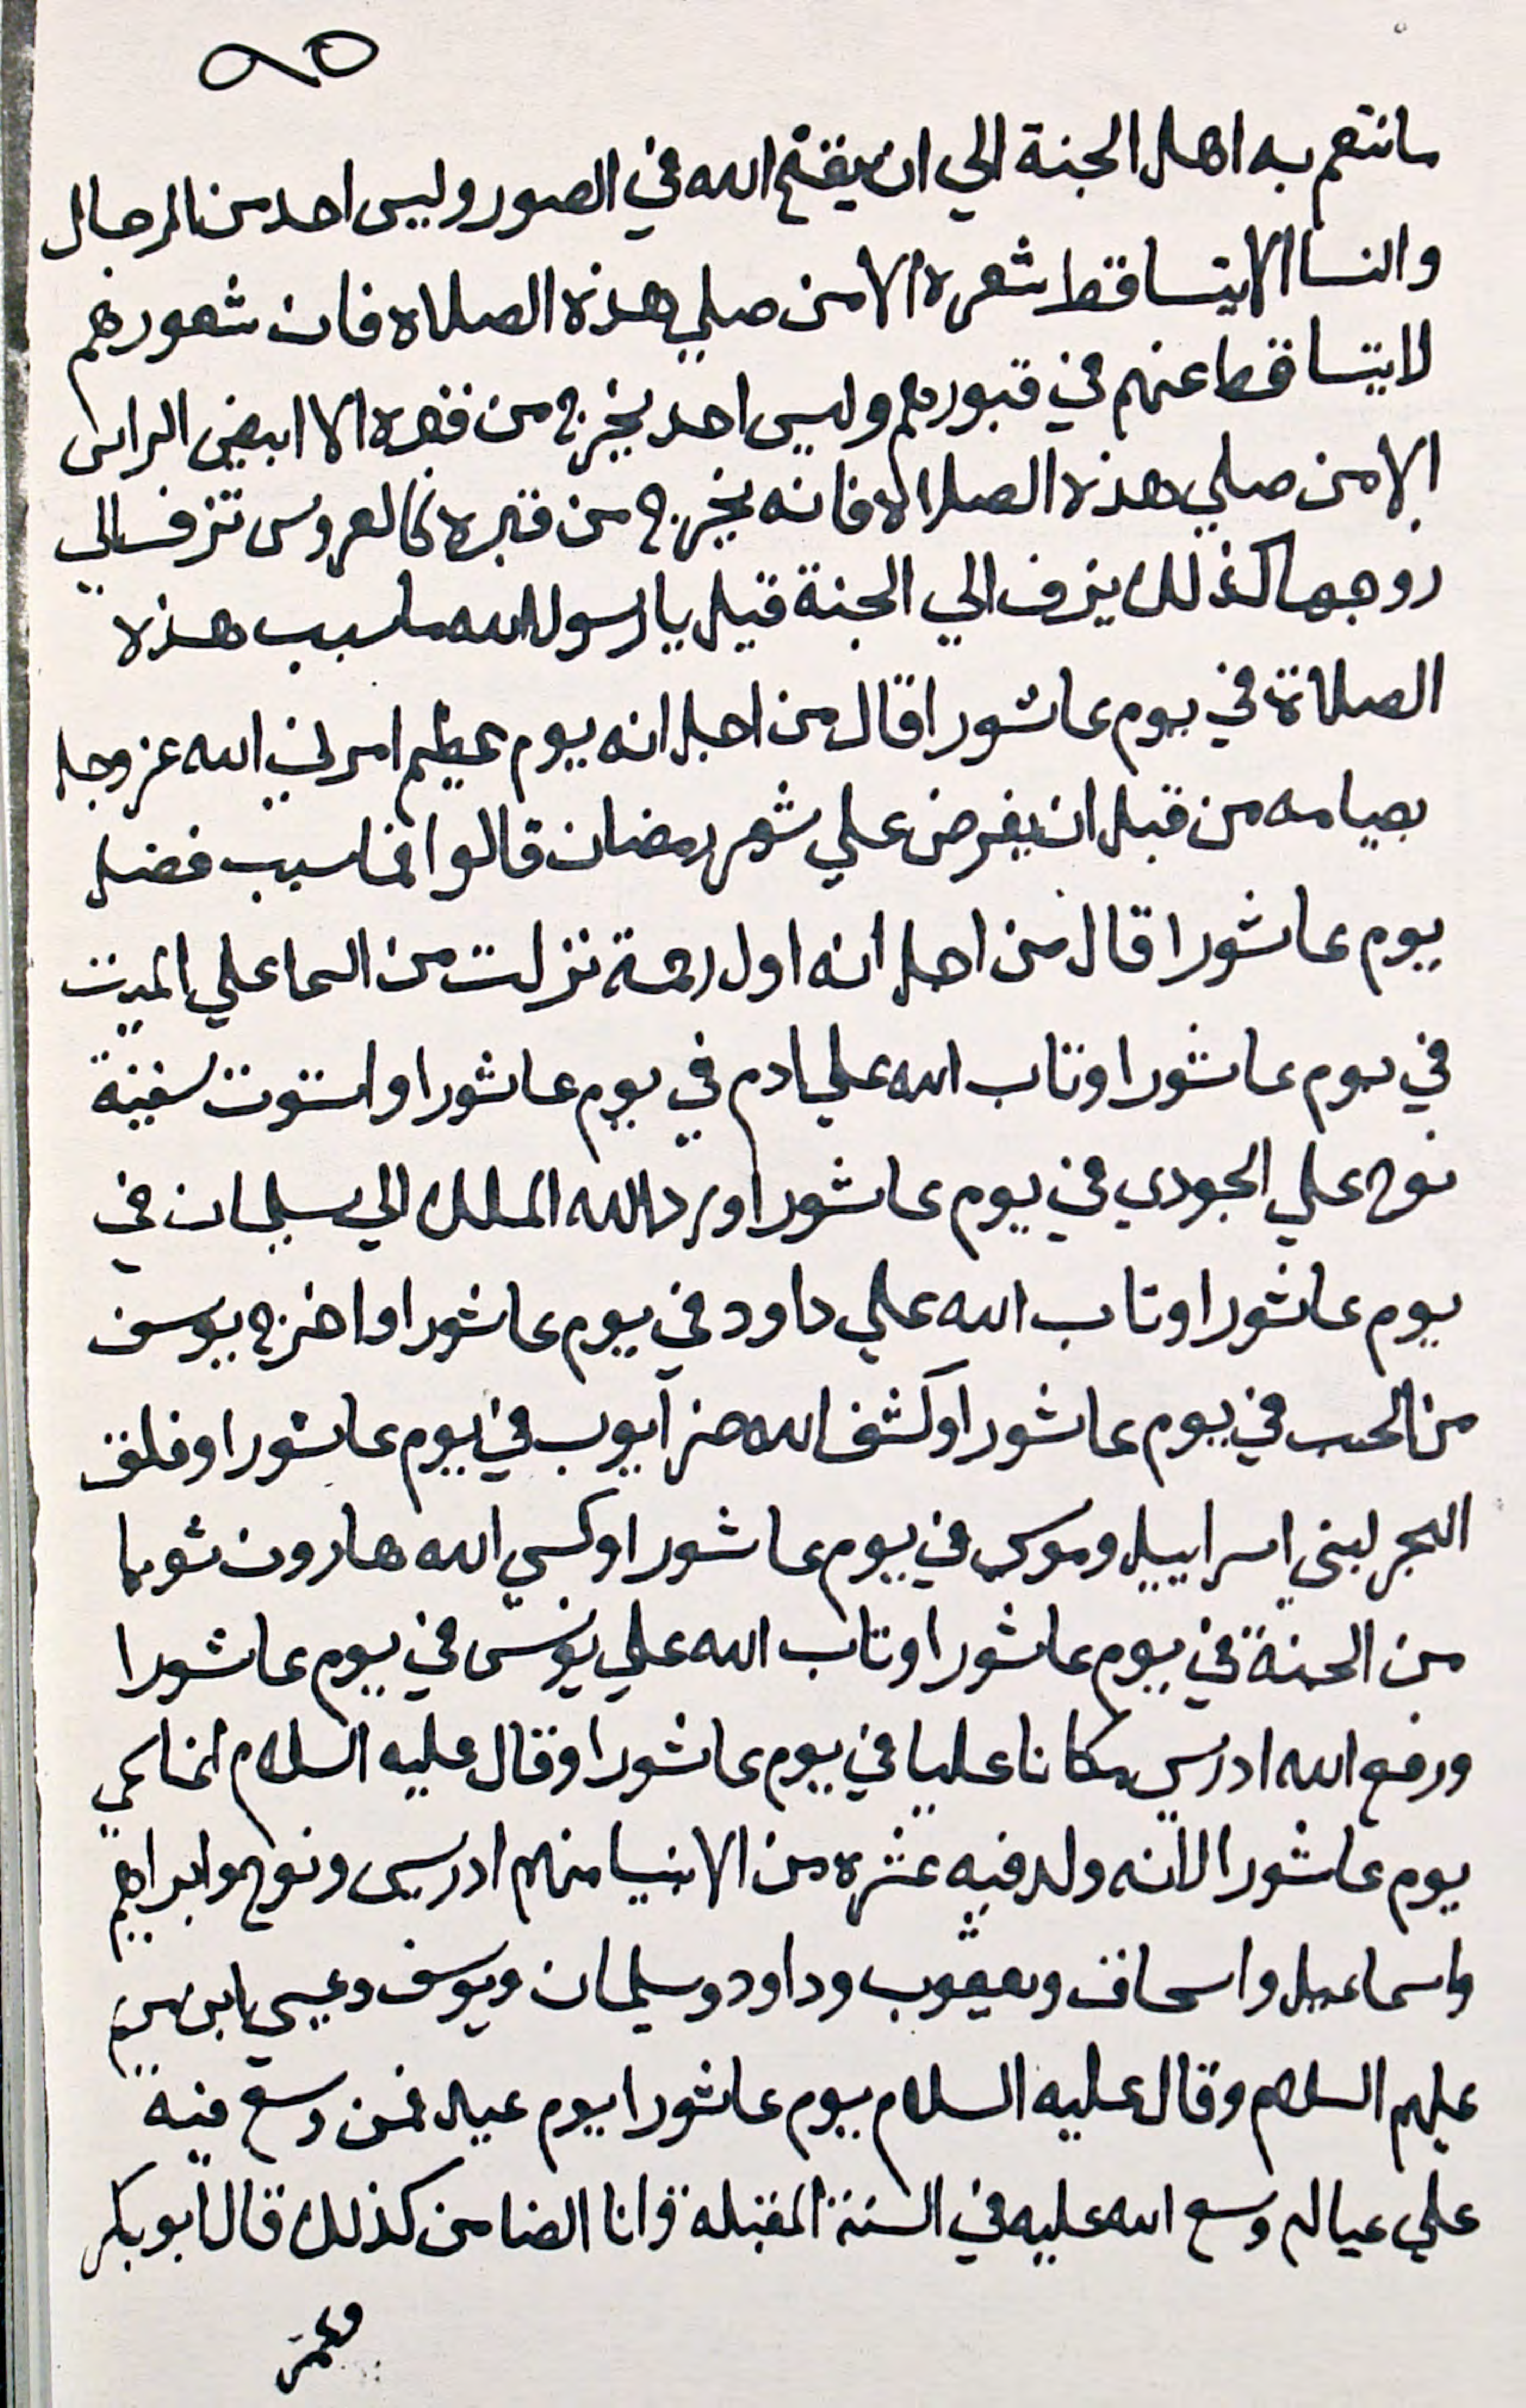 ٩٥
ما نتعم به اهل الجنة الي ان ينفخ الله في الصور وليس احد من الرجال
والنسا الا يتساقط شعره الا من صلي هذه الصلاة فان شعورهم
لا يتساقط عنهم في قبورهم وليس احد يخرج من قبره الا ابيض الراس
الا من صلي هذه الصلاة فانه يخرج من قبره كالعروس تزف الي
زوجها كذلك يزف الي الجنة قيل يا رسول الله ما سبب هذه
الصلاة في يوم عاشورا قال من اجل انه يوم عظيم امرني الله عز وجل
بصيامه من قبل ان يفرض علي شهر رمضان قالوا فما سبب فضل
يوم عاشورا قال من اجل انه اول رحمة نزلت من السما علي الميت
في يوم عاشورا وتاب الله علي ادم في يوم عاشورا واستوت سفينة
نوح علي الجودي في يوم عاشورا ورد الله الملك الي سليمان في
يوم عاشورا وتاب الله علي داود في يوم عاشورا واخرج يوسف
من الجب في يوم عاشورا وكشف الله ضر ايوب في يوم عاشورا وفلق
البحر لبني اسراييل وموسي في يوم عاشورا وكسي الله هارون ثوبا
من الجنة في يوم عاشورا وتاب الله علي يونس في يوم عاشورا
ورفع الله ادريس مكانا عليا في يوم عاشورا وقال عليه السلام انما سمي
يوم عاشورا لانه ولد فيه عشره من الانبيا منهم ادريس ونوح وابراهيم
واسماعيل واسحاق ويعقوب وداود وسليمان ويوسف وعيسي ابن مريم
عليهم السلام وقال عليه السلام يوم عاشورا يوم عيد فمن وسع فيه
علي عياله وسع الله عليه في السنة المقبلة وانا الضامن كذلك قال ابو بكر
وعمر